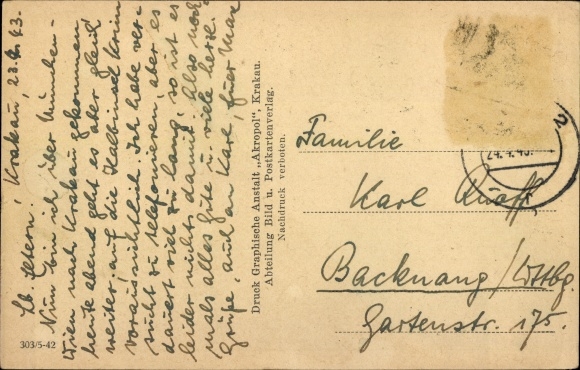 Lb. Eltern! Krakau, 23.4.43.
Nun bin ich über München-
Wien nach Krakau gekommen,
heute abend geht es aber gleich
weiter auf die Halbinsel Krim
voraussichtlich. Ich habe ver-
sucht zu telefonieren, aber es
dauert viel zu lang, so ist es
leider nichts damit. Also noch-
mals alles Gute u. viele herzl.
Grüße, auch an Karl, Euer Max
303/5-42
Druck Graphische Anstalt „Akropol“, Krakau.
Abteilung Bild u. Postkartenverlag.
Nachdruck verboten.
24.4.43.
Familie
Karl
Backnang/Wttbg.
Gartenstr. 175.